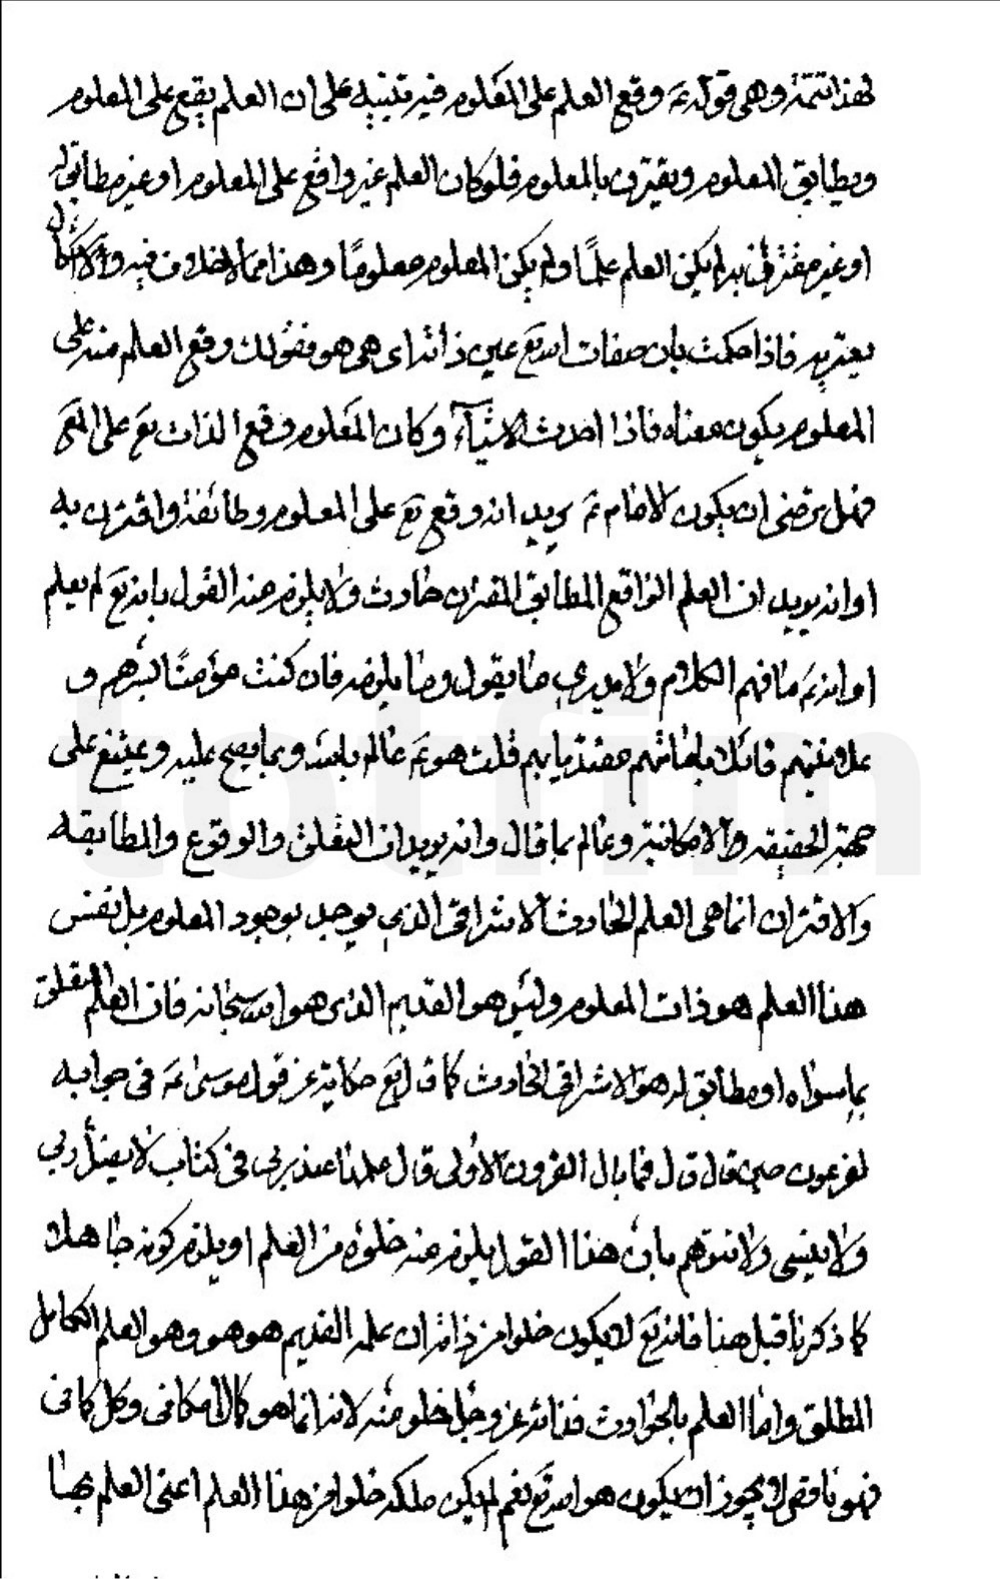 لهذا تتمة وهي قوله ع وقع العلم على المعلوم فيه تنبيه على ان العلم يقع على المعلوم
ويطابق المعلوم ويقترن بالمعلوم فلو كان العلم غير واقع على المعلوم او غير مطابق له
او غير مقترن به لم يكن العلم علمًا ولم يكن المعلوم معلومًا وهذا مما لا خلاف فيه ولا اشكال
يعتريه فاذا حكمت بان صفات الله تع عين ذاته اي هي هو فقولك وقع العلم منه على
المعلوم يكون معناه فاذا احدث الاشياء وكان المعلوم وقع الذات تع على المع
فهل ترضى ان يكون الامام ع يريد انه وقع تع على المعلوم وطابقه واقترن به
او انه يريد ان العلم الواقع المطابق المقترن حادث ولا يلزم منه القول بانه تع لم يعلم
او انه ع ما فهم الكلام ولا يدري ما يقول وما يلزمه فان كنت مؤمنًا بسرهم و
علانيتهم قائلا بامامتهم مقتديا بهم قلت هو ع عالم بلغته وبما يصح عليه ويمتنع على
جهة الحقيقه والامكانية وعالم بما قال وانه يريد ان التعلق والوقوع والمطابقه
والاقتران انما هي العلم الحادث الاشراقي الذي يوجد بوجود المعلوم بل نفس
هذا العلم هو ذات المعلوم وليس هو القديم الذي هو الله سبحانه فان العلم المتعلق
بما سواه او مطابق له هو الاشراقي الحادث كما قال تع حكاية عن قول موسى ع في جوابه
لفرعون حين قال قال فما بال القرون الاولى قال علمها عند ربي في كتاب لا يضل ربي
ولا ينسى ولا تتوهم بان هذا القول يلزم منه خلوه من العلم او يلزم كونه جاهلا
كما ذكرنا قبل هذا فانه تع لا يكون خلوا من ذاته ان علمه القديم هو هو وهو العلم الكامل
المطلق واما العلم بالحوادث فذاته عز وجل خلو منه لانه انما هو كمال امكاني وكل امكاني
فهو ناقص لا يجوز ان يكون هو الله تع نعم لم يكن ملكه خلوا من هذا العلم اعني العلم بها